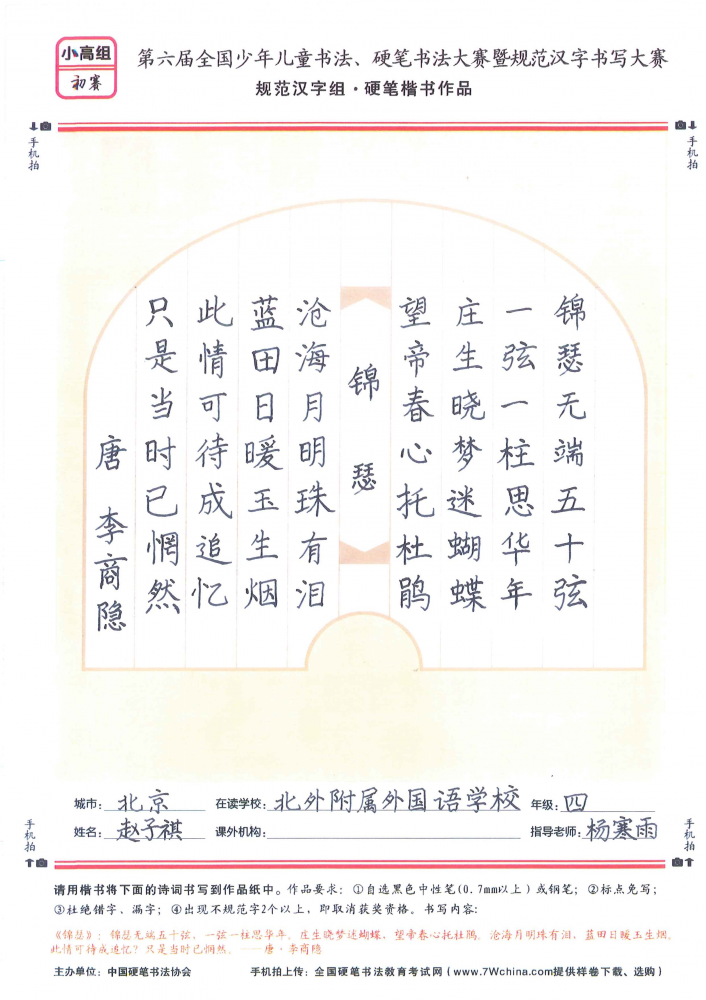 小高组
初赛
第六届全国少年儿童书法、硬笔书法大赛暨规范汉字书写大赛
规范汉字组·硬笔楷书作品
手机拍
手机拍
锦瑟无端五十弦
一弦一柱思华年
庄生晓梦迷蝴蝶
望帝春心托杜鹃
锦瑟
沧海月明珠有泪
蓝田日暖玉生烟
此情可待成追忆
只是当时已惘然
唐 李商隐
手机拍
手机拍
城市：北京 在读学校：北外附属外国语学校 年级：四
姓名：赵子祺 课外机构： 指导老师：杨寒雨
请用楷书将下面的诗词书写到作品纸中。作品要求：①自选黑色中性笔(0.7mm以上)或钢笔；②标点免写；
③杜绝错字、漏字；④出现不规范字2个以上，即取消获奖资格。书写内容：
《锦瑟》：锦瑟无端五十弦，一弦一柱思华年。庄生晓梦迷蝴蝶，望帝春心托杜鹃。沧海月明珠有泪，蓝田日暖玉生烟。
此情可待成追忆？只是当时已惘然。——唐·李商隐
主办单位：中国硬笔书法协会 手机拍上传：全国硬笔书法教育考试网(www.7Wchina.com提供样卷下载、选购)